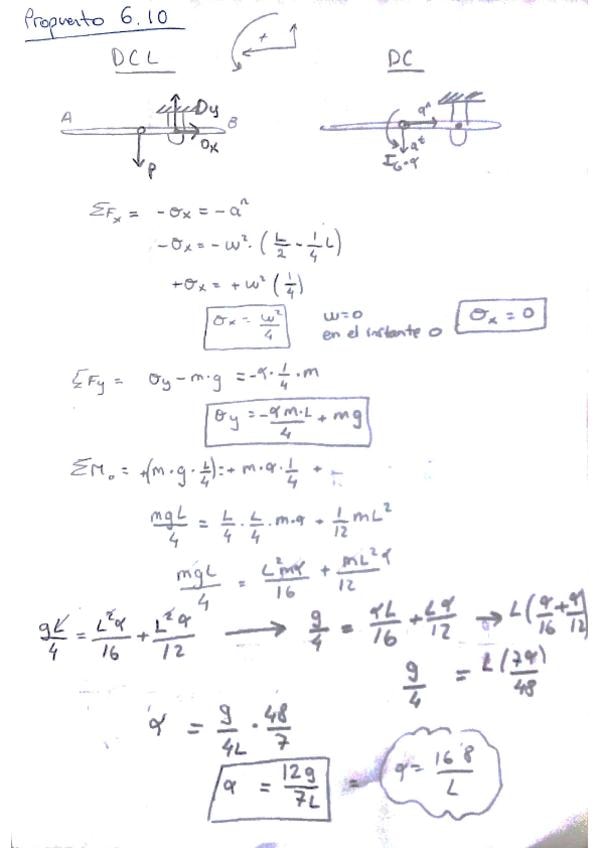 Propuesto 6.10
DCL
+
DC
A
Oy
B
Ox
P
aⁿ
aᵗ
I_G·α
ΣFx = -Ox = -aⁿ
-Ox = -w²·(L/2 - 1/4 L)
+Ox = +w²(1/4)
Ox = w²/4
w=0
en el instante 0
Ox = 0
ΣFy = Oy - m·g = -α·1/4·m
Oy = -αm·L/4 + mg
ΣMo = +(m·g·L/4) = + m·α·1/4 +
mgL/4 = L/4·L/4·m·α + 1/12 mL²
mgL/4 = L²mα/16 + mL²α/12
gL/4 = L²α/16 + L²α/12 → g/4 = αL/16 + Lα/12 → L(α/16 + α/12
g/4 = L(7α)/48
α = g/4L · 48/7
α = 12g/7L = α = 16.8/L